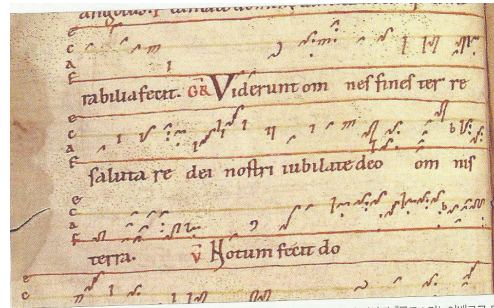 e
c
a
F
tabilia fecit. GR Viderunt om nes fines ter re
e
c
a
F
saluta re dei nostri iubilate deo om nis
e
c
a
F
terra. V Notum fecit do
e
c